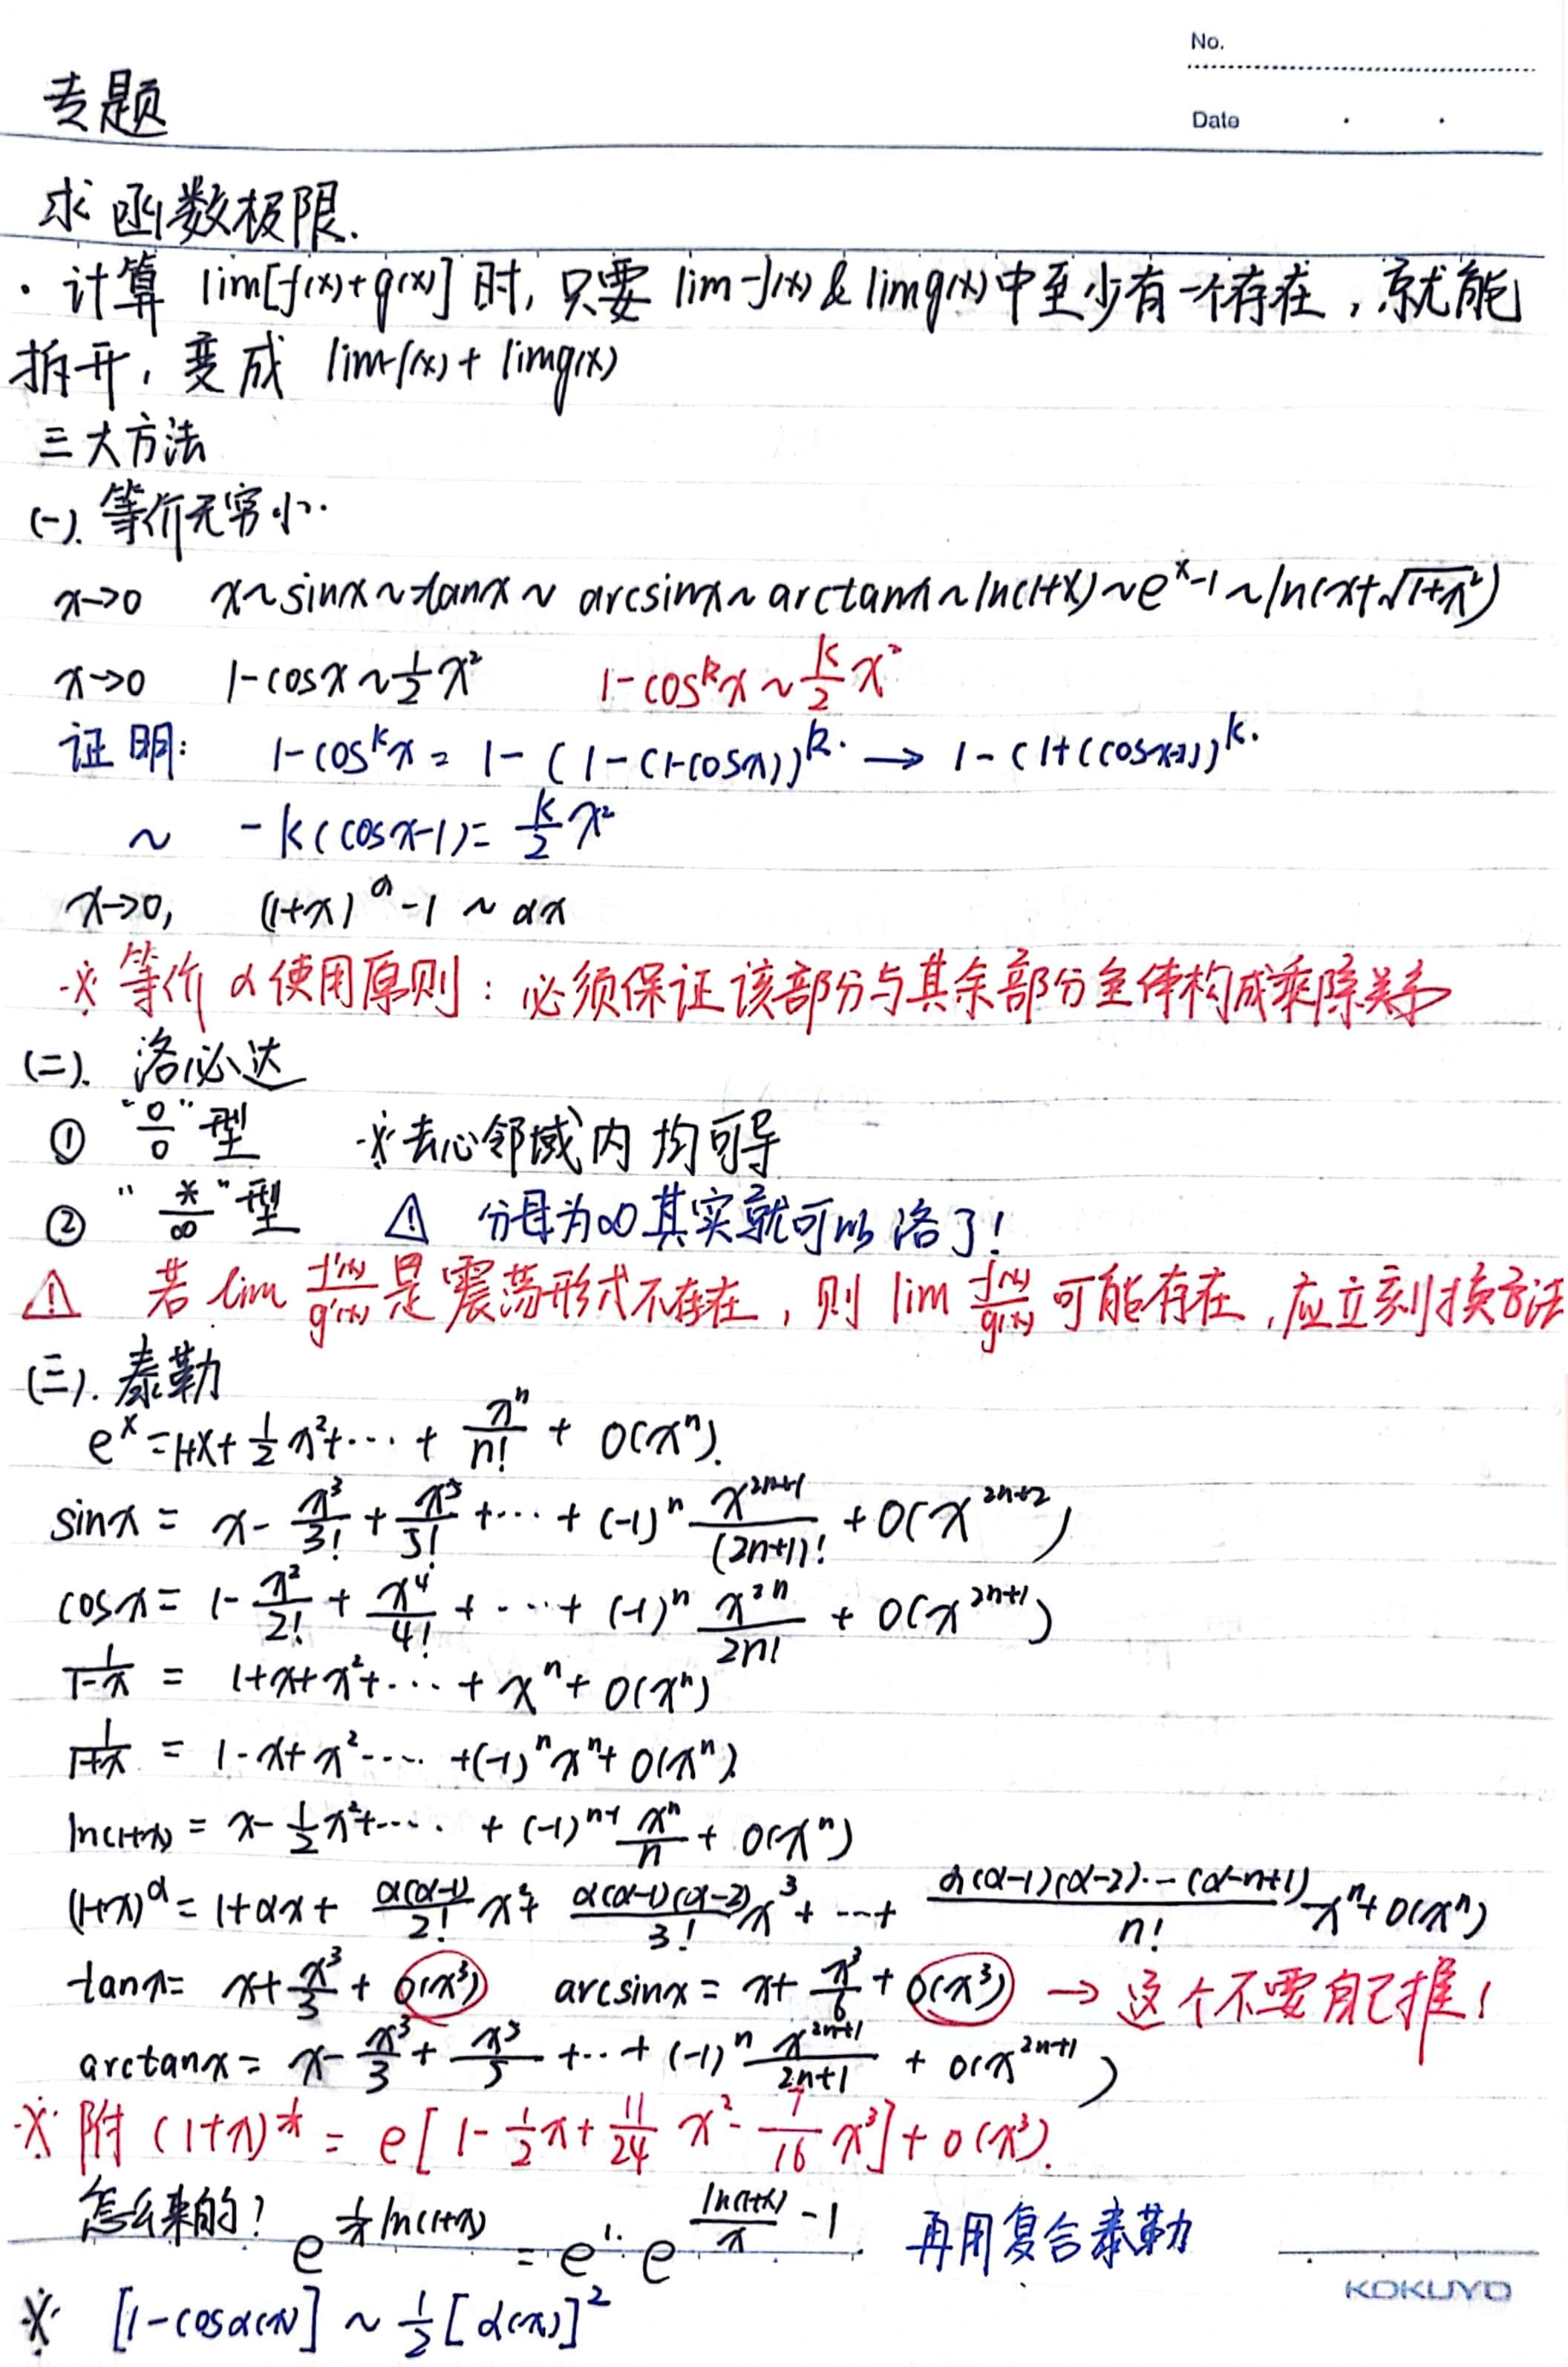 No.
Date
专题
求函数极限.
· 计算 lim[f(x)+g(x)] 时, 只要 limf(x) & limg(x)中至少有一个存在, 就能
拆开, 变成 limf(x) + limg(x)
三大方法
(一). 等价无穷小.
x→0 x~sinx~tanx~arcsinx~arctanx~ln(1+x)~e^x-1~ln(x+√(1+x²))
x→0 1-cosx~½x² 1-cos^k x~k/2 x²
证明: 1-cos^k x = 1-(1-(1-cosx))^k. → 1-(1+(cosx-1))^k.
~ -k(cosx-1)= k/2 x²
x→0, (1+x)^α-1 ~ αx
※等价α使用原则: 必须保证该部分与其余部分全体构成乘除关系
(二). 洛必达
① "0/0"型 ※去心邻域内均可导
② "*/∞"型 ⚠ 分母为∞其实就可以洛了!
⚠ 若 lim f'(x)/g'(x) 是震荡形式不存在, 则 lim f(x)/g(x) 可能存在, 应立刻换方法
(三). 泰勒
e^x=1+x+½x²+···+x^n/n! + o(x^n).
sinx = x-x³/3!+x⁵/5!+···+(-1)^n x^(2n+1)/(2n+1)! +o(x^(2n+2))
cosx= 1-x²/2!+x⁴/4!+···+(-1)^n x^(2n)/2n! + o(x^(2n+1))
1/(1-x) = 1+x+x²+···+x^n+o(x^n)
1/(1+x) = 1-x+x²-···+(-1)^n x^n+o(x^n).
ln(1+x) = x-½x²+···+(-1)^(n-1) x^n/n + o(x^n)
(1+x)^α=1+αx+α(α-1)/2! x²+α(α-1)(α-2)/3! x³+···+α(α-1)(α-2)···(α-n+1)/n! x^n+o(x^n)
tanx= x+x³/3+o(x³) arcsinx = x+x³/6+o(x³) → 这个不要自己推!
arctanx= x-x³/3+x⁵/5+···+(-1)^n x^(2n+1)/2n+1 + o(x^(2n+1))
※附 (1+x)^(1/x) = e[1-½x+11/24 x²-7/16 x³]+o(x³).
怎么来的? e^(1/x ln(1+x)) = e¹·e^(ln(1+x)/x -1). 再用复合泰勒
KOKUYO
※ [1-cosα(x)] ~ ½[α(x)]²